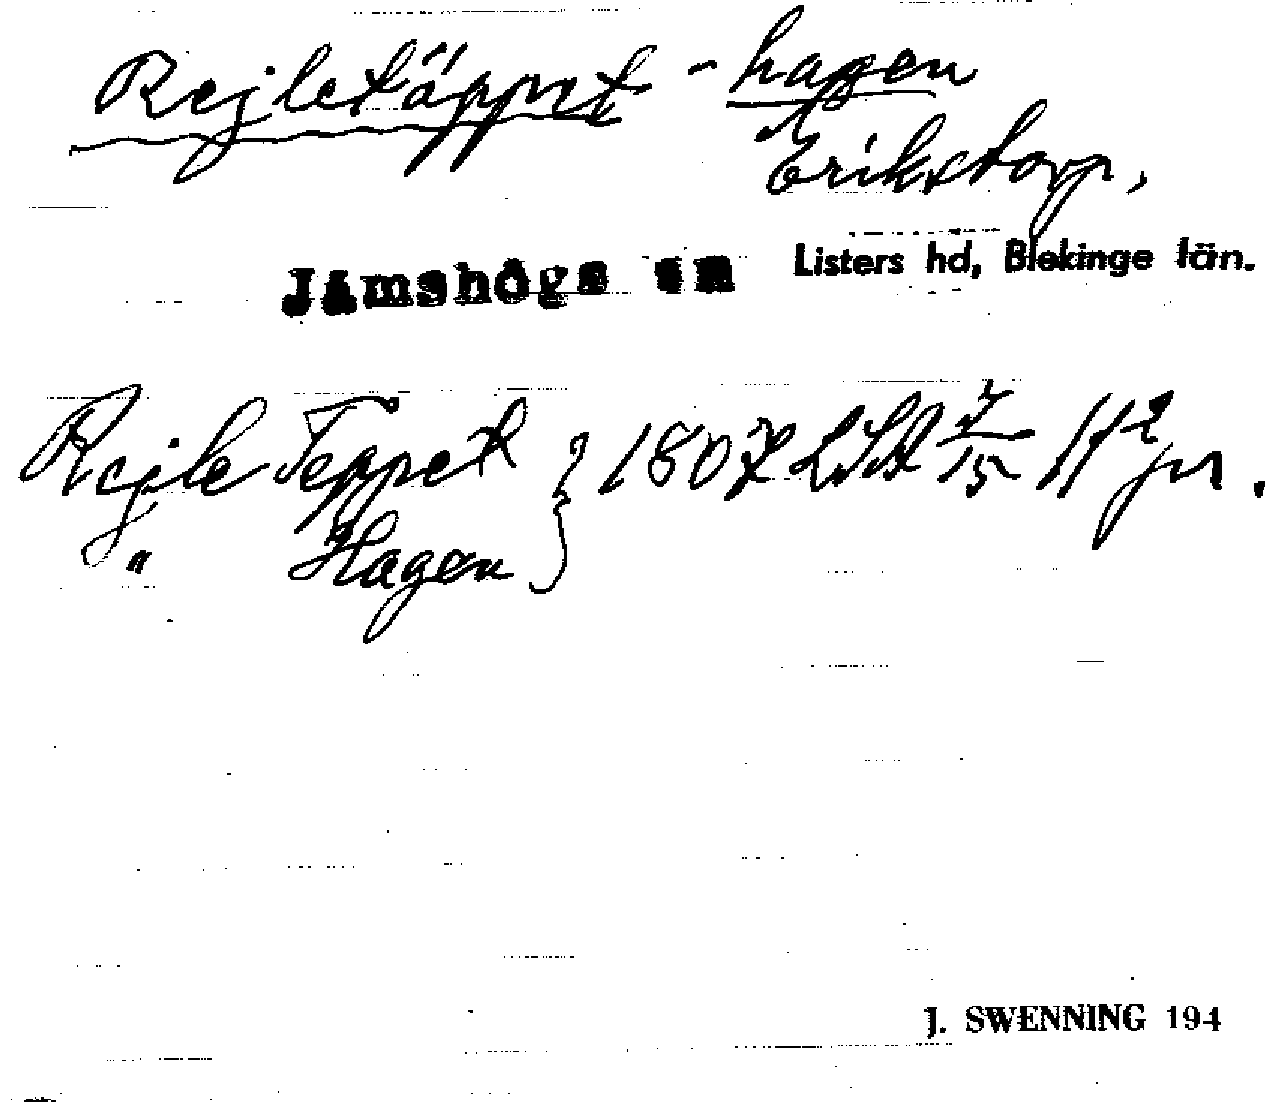 Rejletäppet - hagen
Erikstorp,
Jämshögs sn Listers hd, Blekinge län.
Rejle Teppet } 1807
" Hagen
J. SWENNING 194